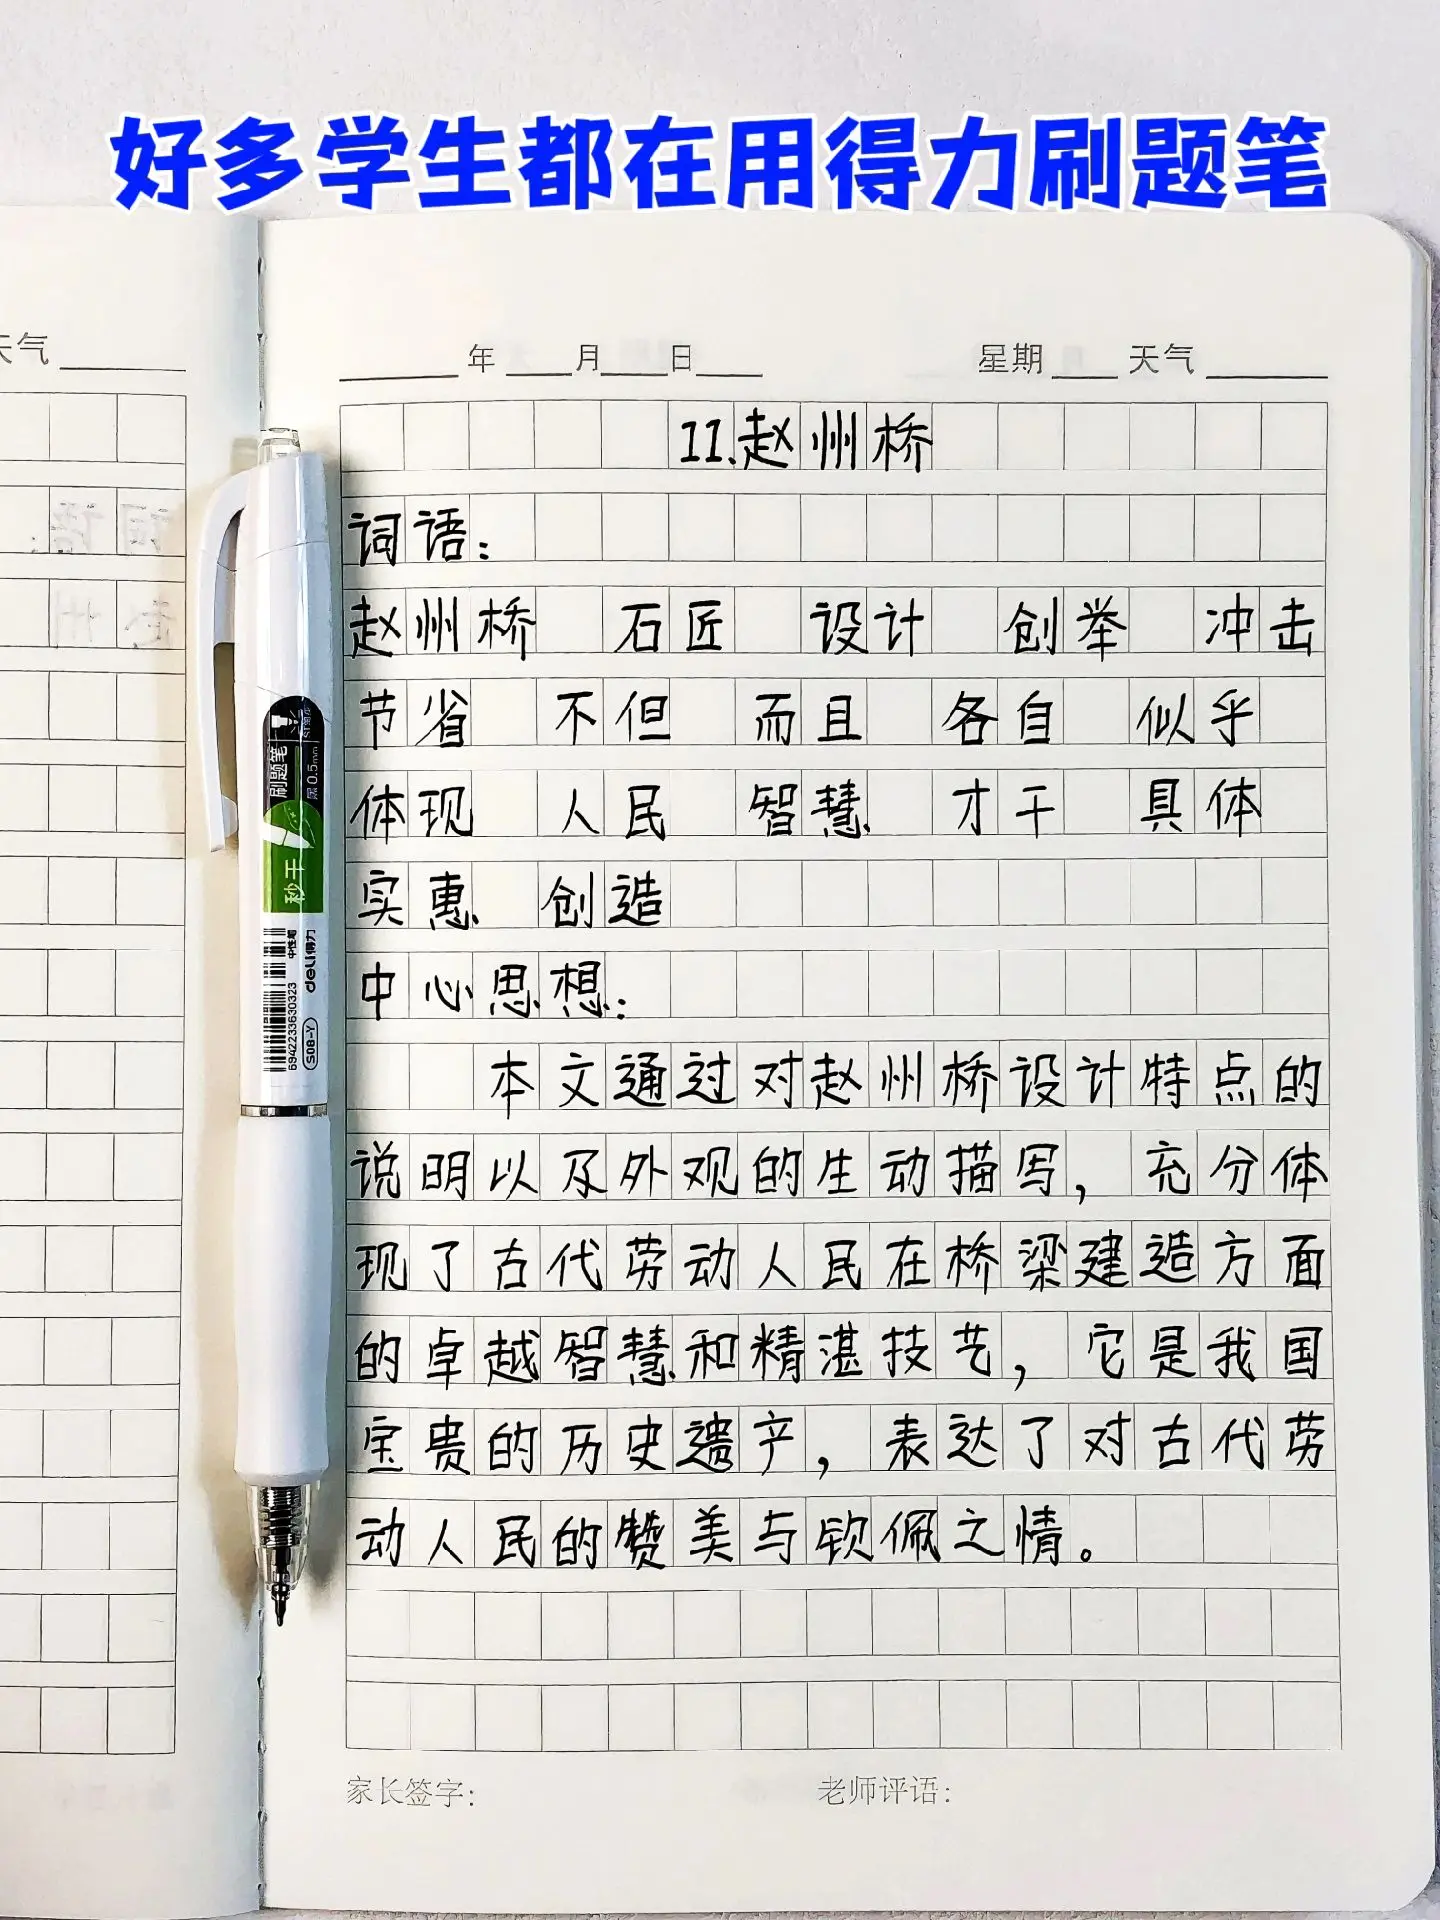 好多学生都在用得力刷题笔
天气
年 月 日 星期 天气
11.赵州桥
词语:
赵州桥 石匠 设计 创举 冲击
节省 不但 而且 各自 似乎
体现 人民 智慧 才干 具体
实惠 创造
中心思想:
本文通过对赵州桥设计特点的
说明以及外观的生动描写,充分体
现了古代劳动人民在桥梁建造方面
的卓越智慧和精湛技艺,它是我国
宝贵的历史遗产,表达了对古代劳
动人民的赞美与钦佩之情。
家长签字: 老师评语:
刷题笔
黑0.5mm
秒干
中性笔
deli得力
6942233630323
S08-Y